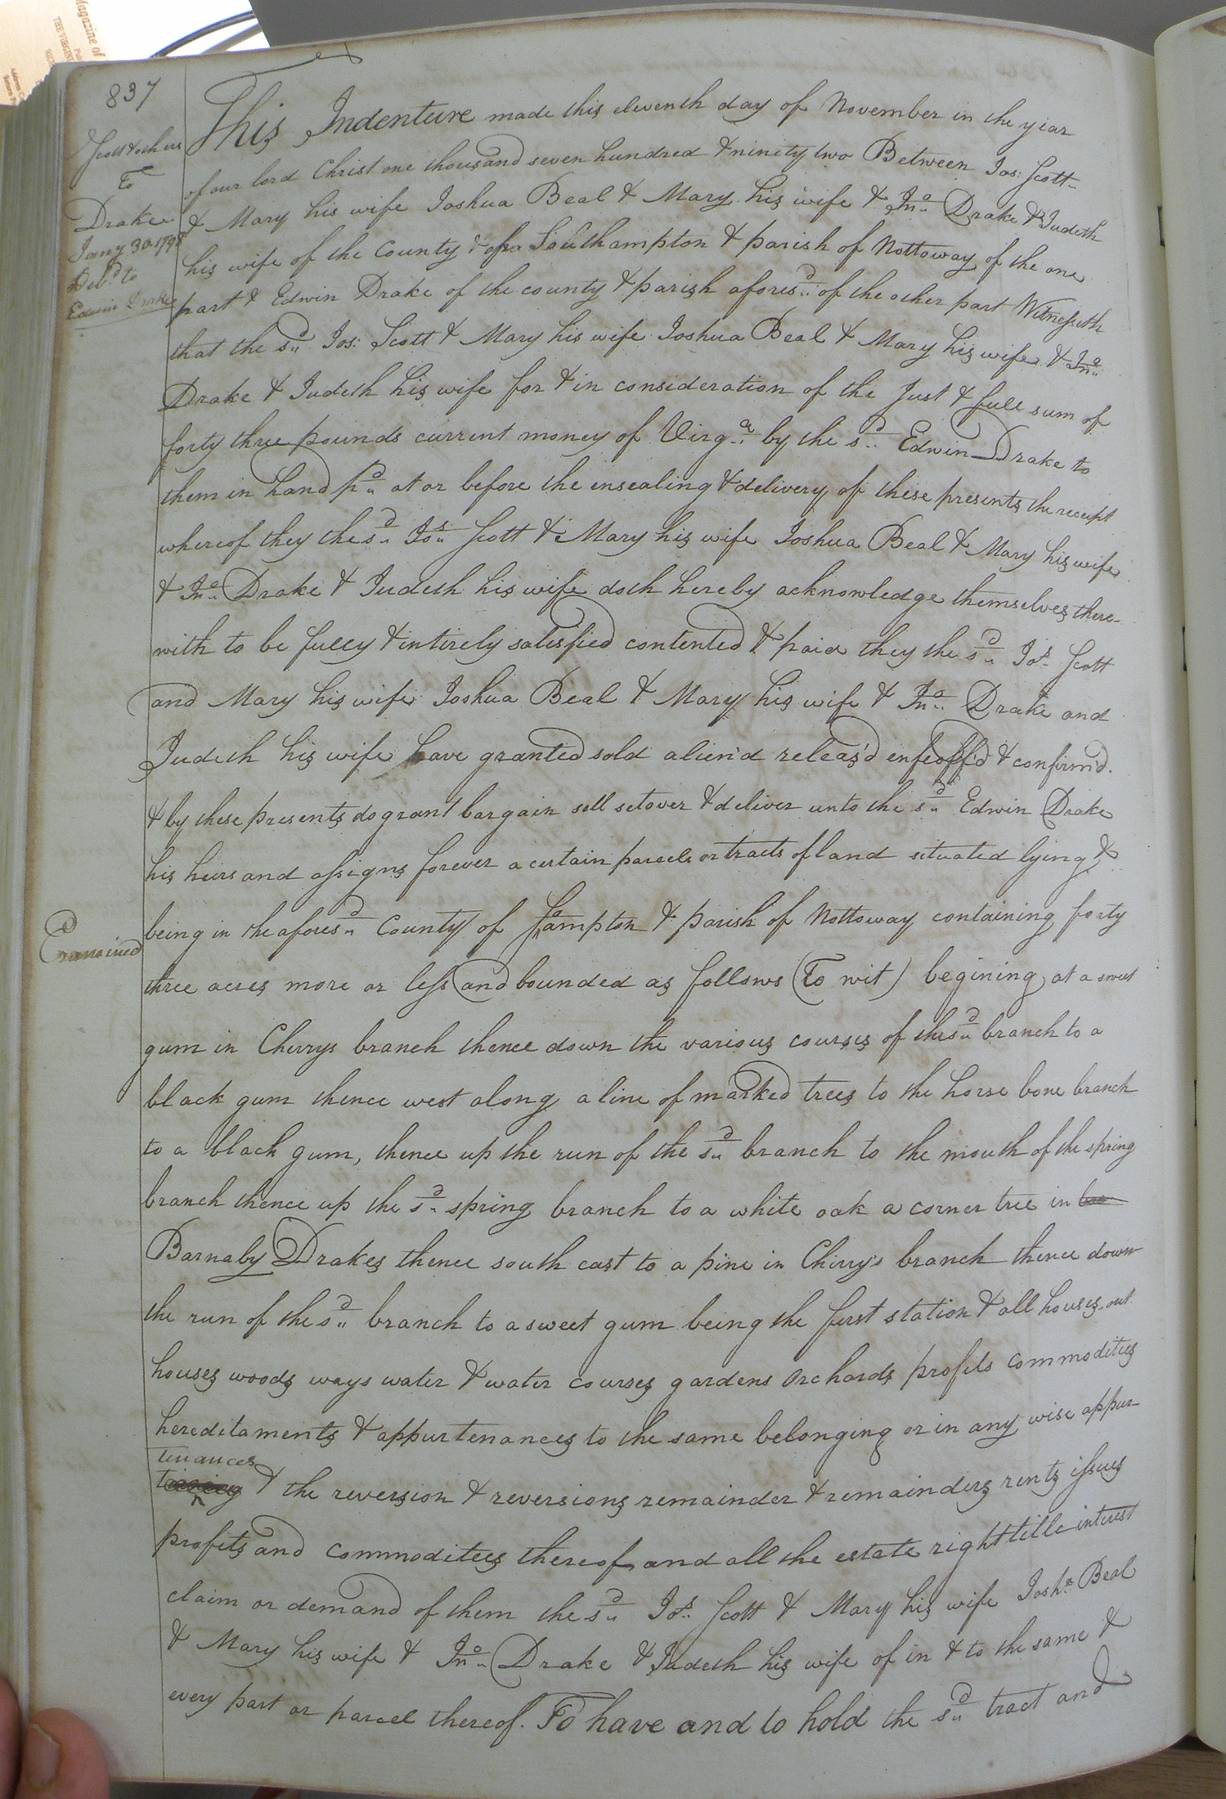 837
Scott & others
To
Drake
Jany 30 1798
Deld to
Edwin Drake
This Indenture made this eleventh day of November in the year
of our lord Christ one thousand seven hundred & ninety two Between Jos: Scott
& Mary his wife Joshua Beal & Mary his wife & Jno. Drake & Judeth
his wife of the County of Southampton & parish of Nottoway of the one
part & Edwin Drake of the county & parish aforesd. of the other part Witnesseth
that the sd. Jos: Scott & Mary his wife Joshua Beal & Mary his wife & Jno.
Drake & Judeth his wife for & in consideration of the Just & full sum of
forty three pounds current money of Virga. by the sd. Edwin Drake to
them in hand pd. at or before the ensealing & delivery of these presents the receipt
whereof they the sd. Jos. Scott & Mary his wife Joshua Beal & Mary his wife
& Jno. Drake & Judeth his wife doth hereby acknowledge themselves there-
with to be fully & intirely satisfied contented & paid they the sd. Jos. Scott
and Mary his wife Joshua Beal & Mary his wife & Jno. Drake and
Judeth his wife have granted sold alien'd releas'd enfeoff'd & confirm'd
& by these presents do grant bargain sell setover & deliver unto the sd. Edwin Drake
his heirs and assigns forever a certain parcels or tracts of land situated lying &
being in the aforesd. County of Shampton & parish of Nottoway containing forty
Examined
three acres more or less and bounded as follows (To wit) begining at a sweet
gum in Cherrys branch thence down the various courses of the sd. branch to a
black gum thence west along a line of marked trees to the horse bone branch
to a black gum, thence up the run of the sd. branch to the mouth of the spring
branch thence up the sd. spring branch to a white oak a corner tree in
Barnaby Drakes thence south east to a pine in Chirry's branch thence down
the run of the sd. branch to a sweet gum being the first station & all houses out
houses woods ways water & water courses gardens orchards profits commodities
hereditaments & appurtenances to the same belonging or in any wise appur-
tenances
& the reversion & reversions remainder & remainders rents issues
profits and commodities thereof and all the estate right title interest
claim or demand of them the sd. Jos. Scott & Mary his wife Josha. Beal
& Mary his wife & Jno. Drake & Judeth his wife of in & to the same &
every part or parcel thereof. To have and to hold the sd. tract and